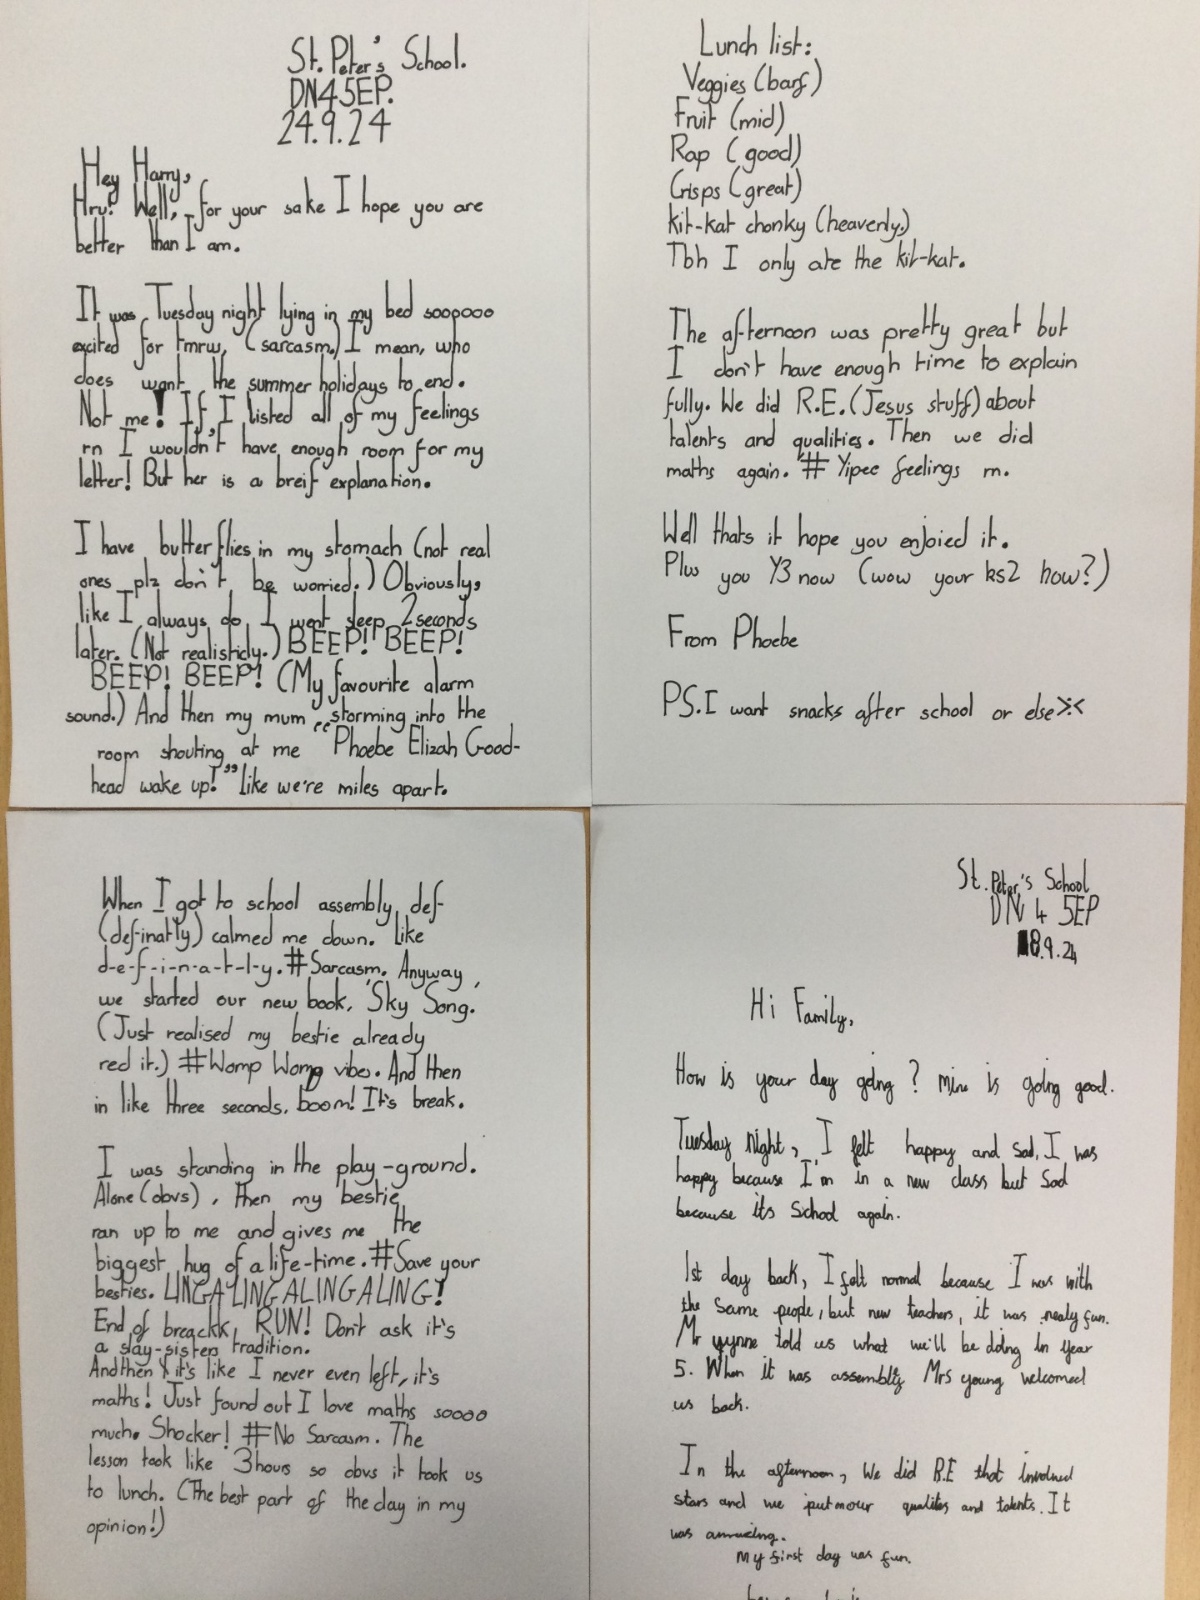 St. Peter's School.
DN4 5EP.
24.9.24
Hey Harry,
Hru? Well, for your sake I hope you are
better than I am.
It was Tuesday night lying in my bed soooooo
excited for tmrw, (sarcasm.) I mean, who
does want the summer holidays to end.
Not me! If, I listed all of my feelings
rn I wouldn't have enough room for my
letter! But her is a breif explanation.
I have butterflies in my stomach (not real
ones plz don't be worried.) Obviously,
like I always do I went sleep 2 seconds
later. (Not realisticly.) BEEP! BEEP!
BEEP! BEEP! (My favourite alarm
sound.) And then my mum storming into the
room shouting at me "Phoebe Elizah Good-
head wake up!" like we're miles apart.
When I got to school assembly def-
(definatly) calmed me down. Like
d-e-f-i-n-a-t-l-y. #Sarcasm. Anyway,
we started our new book, 'Sky Song.'
(Just realised my bestie already
red it.) #Womp Womp vibes. And then
in like three seconds, boom! It's break.
I was standing in the play-ground.
Alone (obvs), then my bestie
ran up to me and gives me the
biggest hug of a life-time. #Save your
besties. LINGALINGALINGALING!
End of breackk, RUN! Don't ask it's
a slay-sisters tradition.
And then it's like I never even left, it's
maths! Just found out I love maths soooo
much. Shocker! #No Sarcasm. The
lesson took like 3hours so obvs it took us
to lunch. (The best part of the day in my
opinion!)
Lunch list:
Veggies (barf)
Fruit (mid)
Rap (good)
Crisps (great)
kit-kat chonky (heavenly.)
Tbh I only ate the kit-kat.
The afternoon was pretty great but
I don't have enough time to explain
fully. We did R.E. (Jesus stuff) about
talents and qualities. Then we did
maths again. # Yipee feelings rn.
Well thats it hope you enjoied it.
Plus you Y3 now (wow your ks2 how?)
From Phoebe
PS. I want snacks after school or else >:<
St. Peter's School
DN4 5EP
18.9.24
Hi Family,
How is your day going? Mine is going good.
Tuesday Night, I felt happy and Sad, I was
happy because I'm in a new class but Sad
because its School again.
1st day back, I felt normal because I was with
the Same people, but new teachers, it was realy fun.
Mr wynne told us what we'll be doing in Year
5. When it was assembly Mrs young welcomed
us back.
In the afternoon, We did R.E that involved
stars and we put our qualites and talents. It
was
My first day was fun.